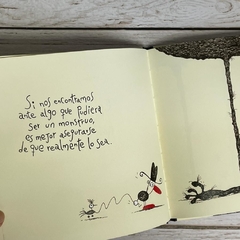 Si nos encontramos
ante algo que pudiera
ser un monstruo,
es mejor asegurarse
de que realmente lo sea.